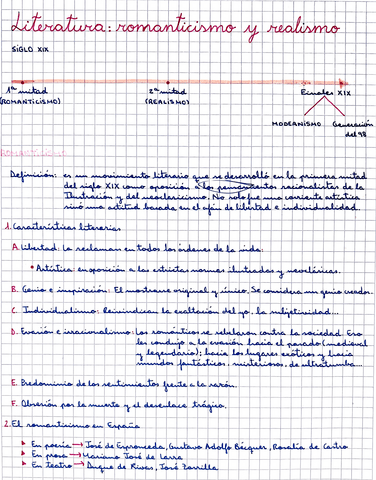 Literatura: romanticismo y realismo
SIGLO XIX
1ª mitad
(ROMANTICISMO)
2ª mitad
(REALISMO)
Finales XIX
MODERNISMO
Generación
del 98
ROMANTICISMO
Definición: es un movimiento literario que se desarrolló en la primera mitad
del siglo XIX como oposición a los pensamientos racionalistas de la
Ilustración y del neoclasicismo. No solo fue una corriente artística
sinó una actitud basada en el afán de libertad e individualidad.
1. Características literarias
A. Libertad: La reclaman en todos los órdenes de la vida:
• Artística: en oposición a las estrictas normas ilustradas y neoclásicas.
B. Genio e inspiración: El mostrarse original y único. Se considera un genio creador.
C. Individualismo: Reivindican la exaltación del yo, la subjetividad...
D. Evasión e irracionalismo: Los románticos se rebelaron contra la sociedad. Eso
les condujo a la evasión hacia el pasado (medieval
y legendario); hacia los lugares exóticos y hacia
mundos fantásticos, misteriosos, de ultratumba...
E. Predominio de los sentimientos frente a la razón.
F. Obsesión por la muerte y el desenlace trágico.
2. El romanticismo en España
En poesía → José de Espronceda, Gustavo Adolfo Bécquer, Rosalía de Castro
En prosa → Mariano José de Larra
En teatro → Duque de Rivas, José Zorrilla